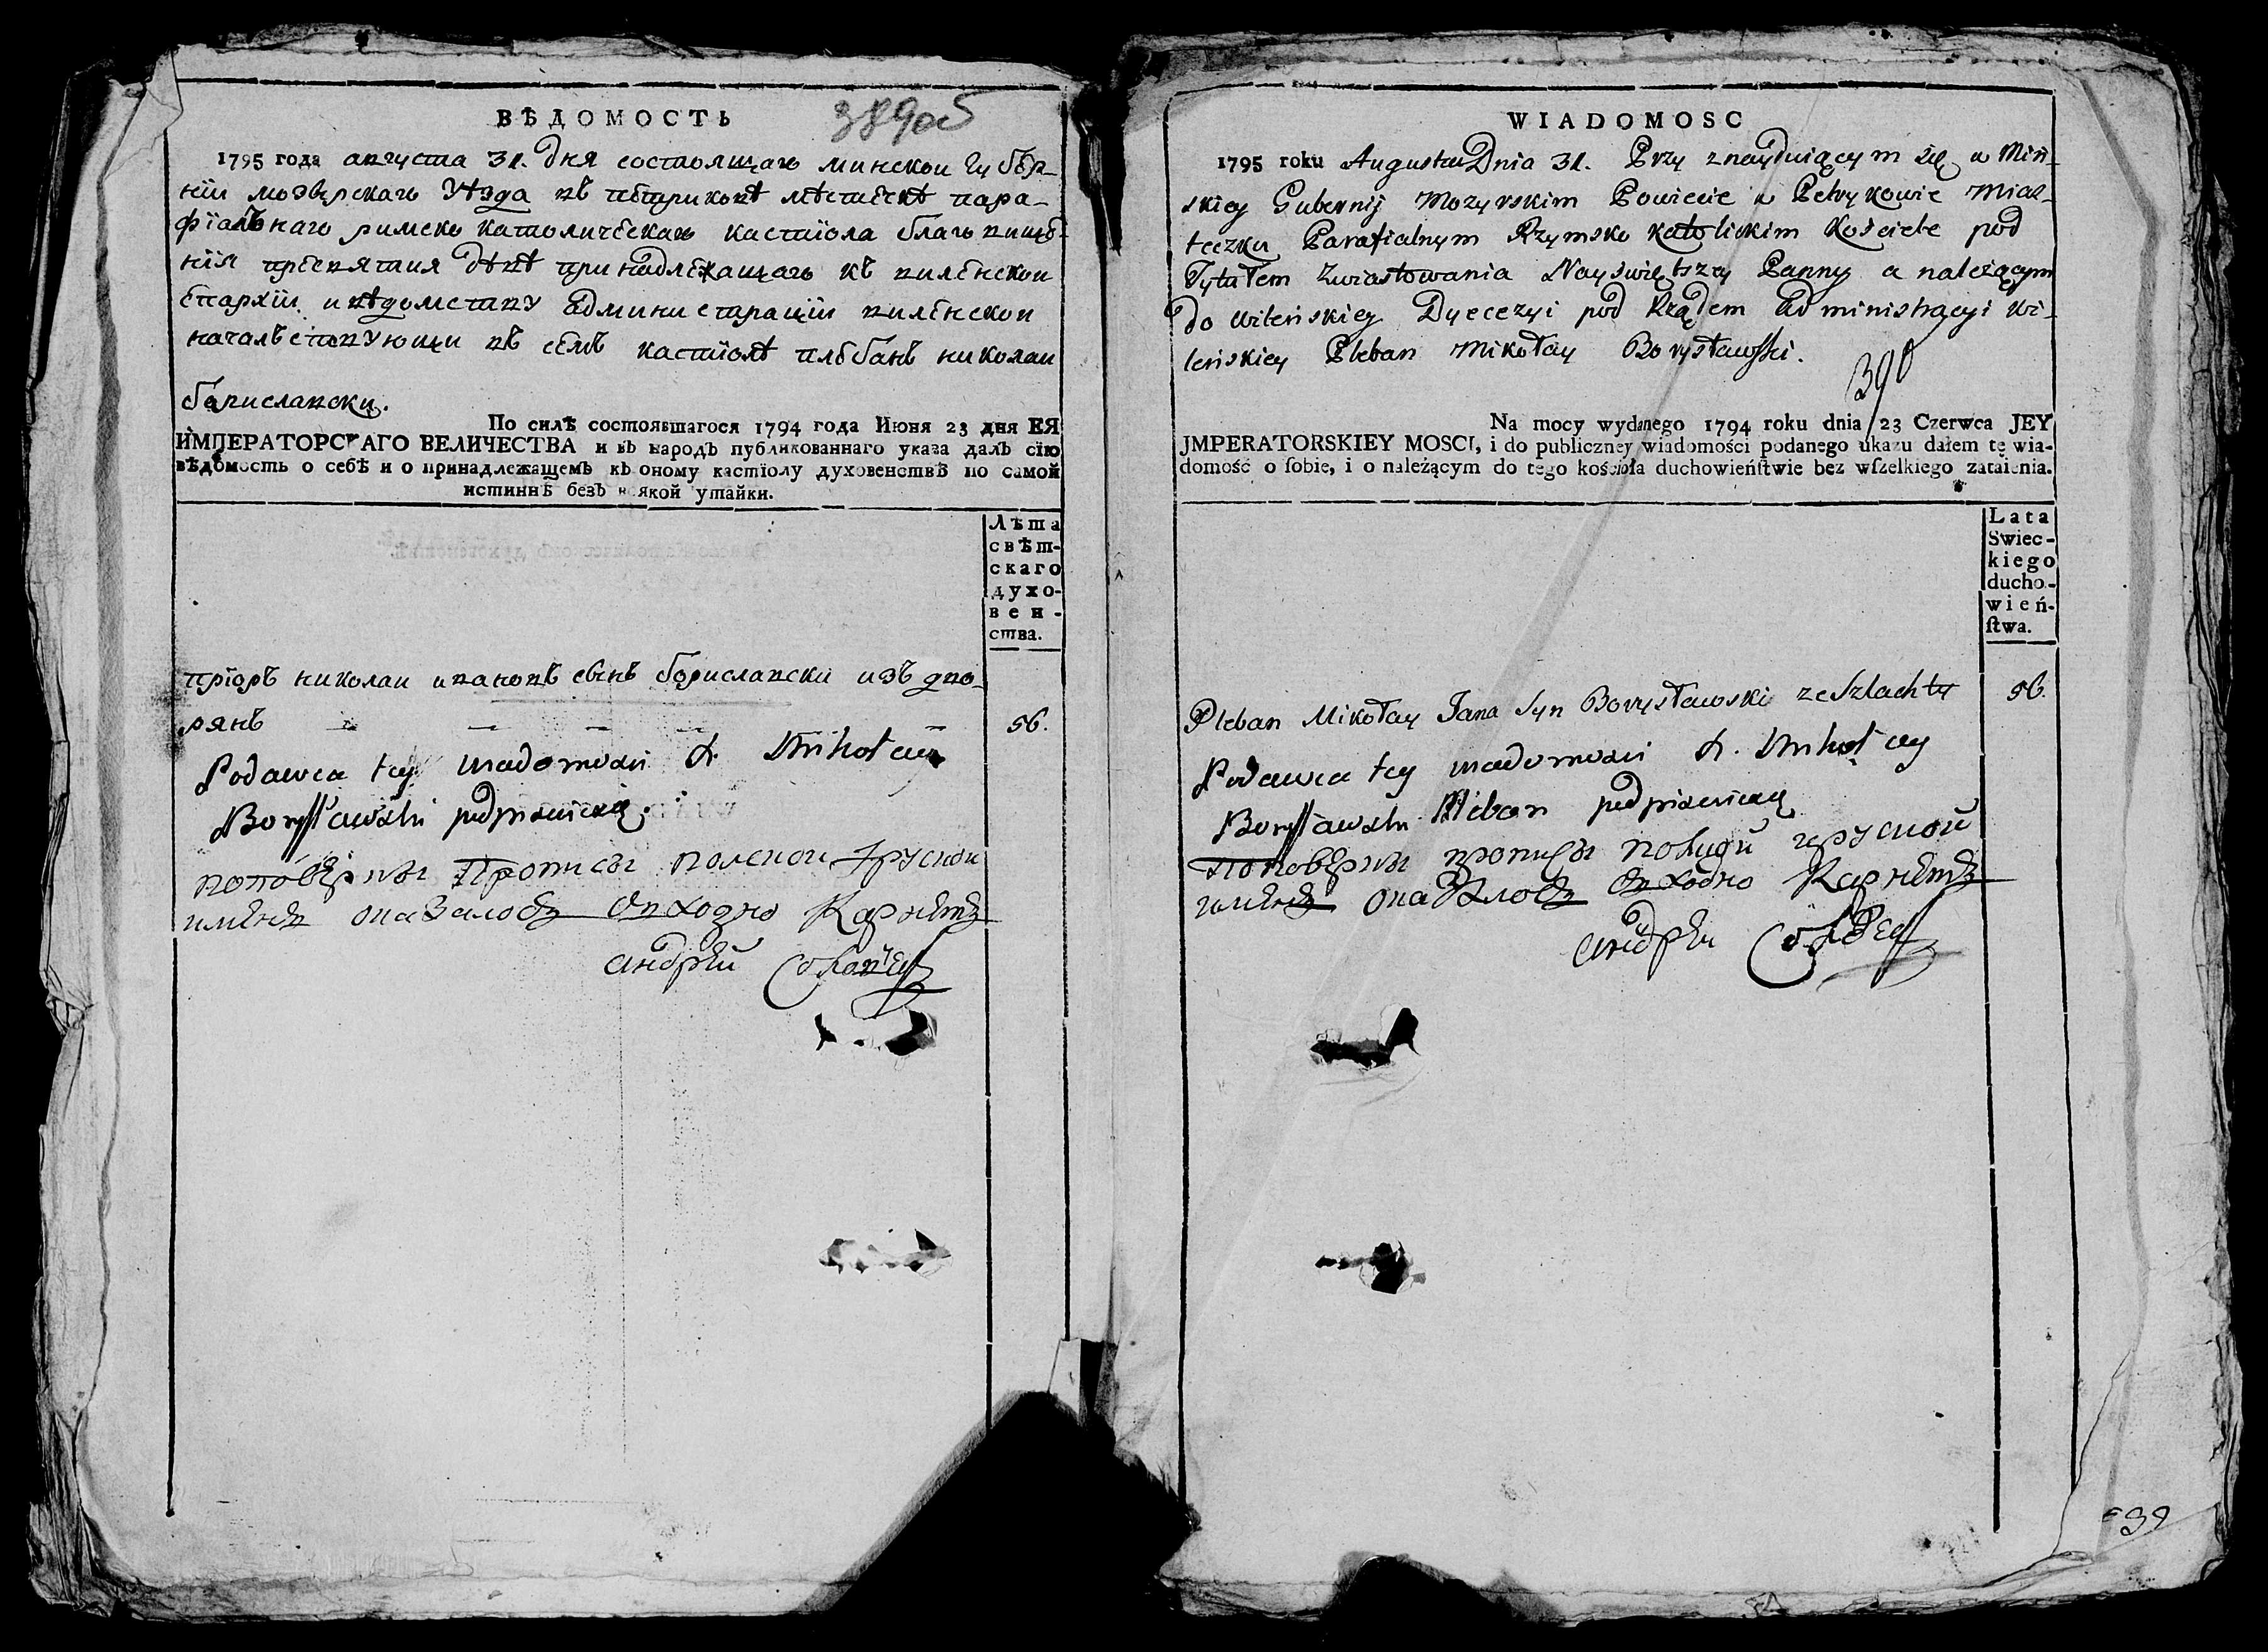 ВѢДОМОСТЬ
389об
1795 года августа 31. дня состоящаго минской губер-
нїи мозырскаго уѣзда въ петриковѣ мѣстечкѣ пара-
фїалънаго римско католическаго кастїола благовище-
нїя пресвятия дѣвѣ принадлежащаго къ виленской
епархїи и вѣдомству администрацїи виленскои
началъствующи въ семъ кастїолѣ плебанъ николаи
бориславски.
По силѣ состоявшагося 1794 года Июня 23 дня ЕЯ
ИМПЕРАТОРСКАГО ВЕЛИЧЕСТВА и въ народъ публикованнаго указа далъ сїю
вѣдомость о себѣ и о принадлежащемъ къ оному кастїолу духовенствѣ по самой
истиннѣ безъ всякой утайки.
Лѣта
свѣт-
скаго
духо-
вен-
ства.
прїоръ николаи ивановъ сынъ бориславски изъ дво-
рянъ — — — — — 56.
Podawca tey wiadomosci X. Mikołay
Borysławski podpisuie się.
андрей
WIADOMOSC
1795 roku Augusta Dnia 31. Przy znayduiącym się w Miń-
skiey Gubernij Mozyrskim Powiecie w Petrykowie Mias-
teczku Parafialnym Rzymsko katolickim Kościele pod
Tytułem Zwiastowania Nayświętszey Panny a należącym
do wileńskiey Dyecezyi pod Rządem Administracyi wi-
leńskiey Pleban Mikołay Borysławski.
390
Na mocy wydanego 1794 roku dnia 23 Czerwca JEY
JMPERATORSKIEY MOSCI, i do publiczney wiadomości podanego ukazu dałem tę wia-
domość o ſobie, i o należącym do tego kościoła duchowieńſtwie bez wſzelkiego zataienia.
Lata
Swiec-
kiego
ducho-
wień-
ſtwa.
Pleban Mikołay Jana Syn Borysławski ze Szlachty 56.
Podawca tey wiadomosci X. Mikołay
Borysławski Pleban podpisuie się
андрей
39